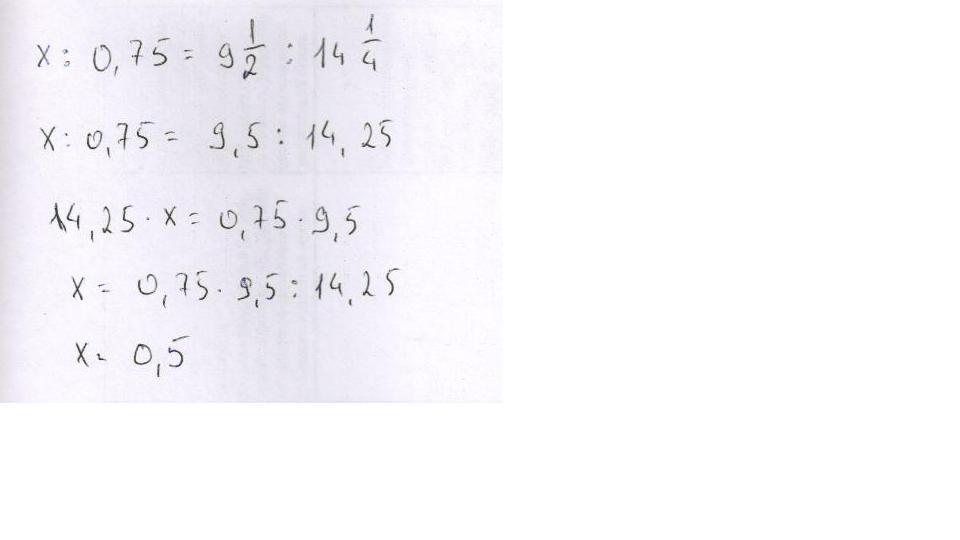 x : 0,75 = 9 1/2 : 14 1/4
x : 0,75 = 9,5 : 14,25
14,25 · x = 0,75 · 9,5
x = 0,75 · 9,5 : 14,25
x = 0,5